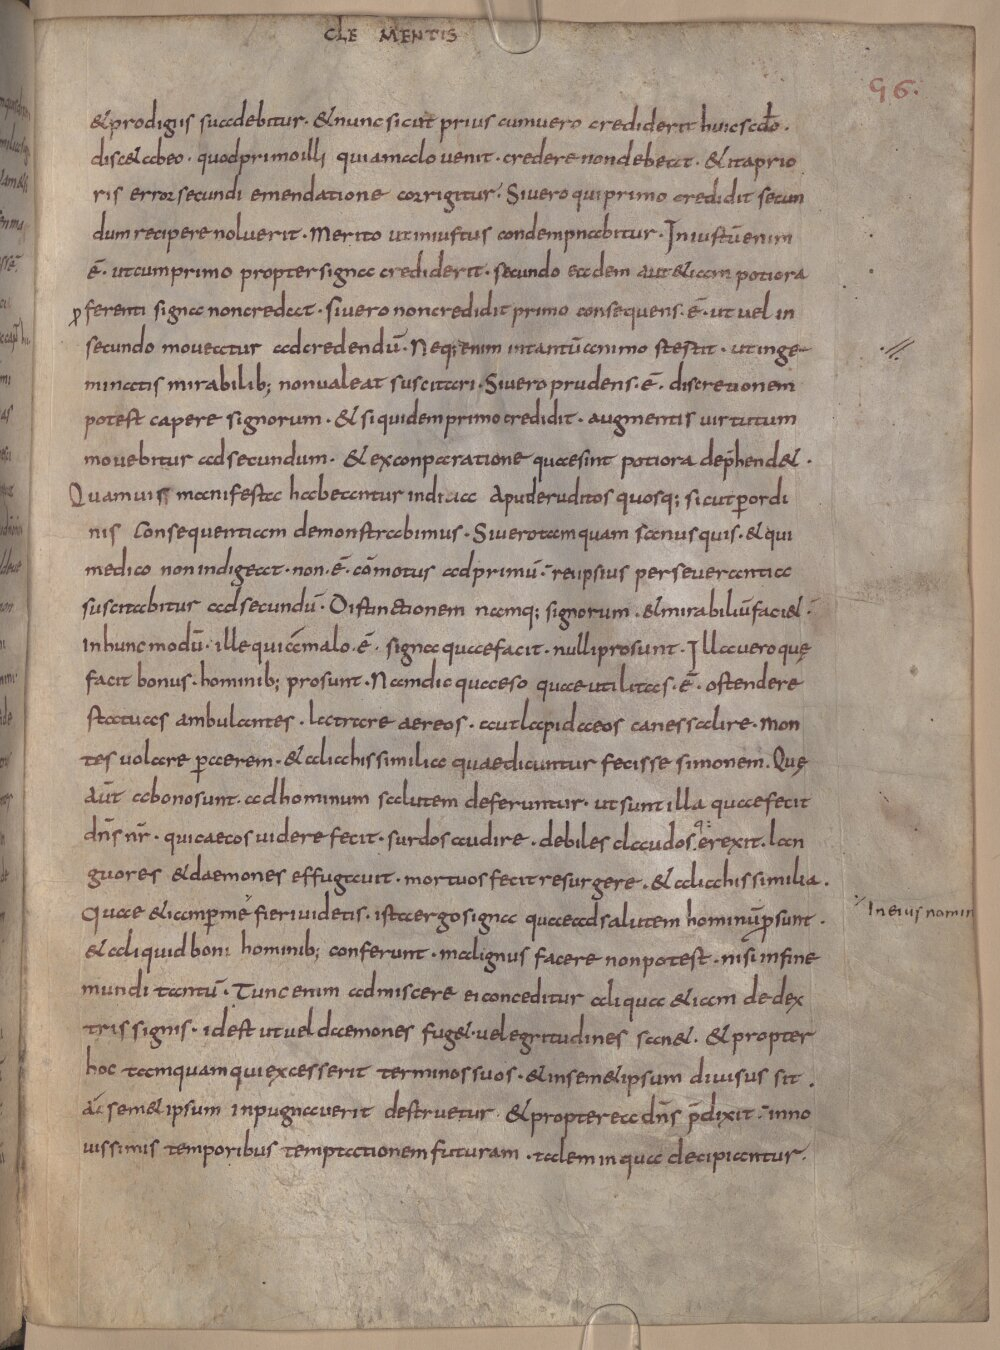 CLE MENTIS
96.
& prodigiis suadebitur. & nunc sicut prius cum uero crediderit huic scdo.
disc& abeo. quod primo illi qui amalo uenit. credere non debeat. & ita prio
ris error secundi emendatione corrigitur. Siuero qui primo credidit secun
dum recipere noluerit. Merito ut iniustus condempnabitur. Iniustū enim
ē. ut cum primo propter signa crediderit. secundo eadem aut &iam potiora
p ferenti signa non credat. siuero non credidit primo consequens. ē. ut uel in
secundo moueatur ad credendū. Neq; enim intantū animo stestit. ut inge
minatis mirabilib; non ualeat suscitari. Siuero prudens. ē. discretionem
potest capere signorum. & si quidem primo credidit. augmentis uirtutum
mouebitur ad secundum. & exconparatione quae sint potiora deph̄end&.
Quamuis manifesta habeantur indicia Apud eruditos quosq; sicut p ordi
nis Consequentiam demonstrabimus. Siuero tamquam sanus quis. & qui
medico non indigeat. non. ē. cōmotus ad primū. rei ipsius perseuerantia
suscitabitur ad secundū. Distinctionem namq; signorum. & mirabiliū faci&.
in hunc modū. ille qui ā malo. ē. signa quae facit. nulli prosunt. Illa uero quę
facit bonus. hominib; prosunt. Nam dic quaeso quae utilitas. ē. ostendere
statuas ambulantes. latrare aereos. aut lapidaeos canes salire. mon
tes uolare p aerem. & alia his similia quae dicuntur fecisse simonem. Quę
aūt abono sunt. ad hominum salutem deferuntur. ut sunt illa quae fecit
dn̄s nr̄. qui caecos uidere fecit. surdos audire. debiles claudosq: erexit. lan
guores & daemones effugauit. mortuos fecit resurgere. & alia his similia.
Quae &iam p me fieri uidetis. ista ergo signa quae ad salutem hominū p sunt.
& aliquid boni hominib; conferunt. malignus facere non potest. nisi in fine
In eius nomin
mundi tantū. Tunc enim admiscere ei conceditur aliqua &iam de dex
tris signis. id est ut uel daemones fug&. uel egritudines san&. & propter
hoc tamquam qui excesserit terminos suos. & in sem&ipsum diuisus sit.
ac sem&ipsum inpugnauerit destruetur & propterea dn̄s p̄dixit. inno
uissimis temporibus temptationem futuram. talem in qua decipiantur.